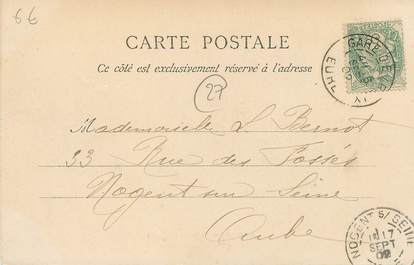 66
CARTE POSTALE
Ce côté est exclusivement réservé à l'adresse
27
Mademoiselle L. Bernot
33 Rue des Fossés
Nogent sur Seine
Aube
GARE D
EURE
NOGENT S/ SEINE
17
SEPT
02